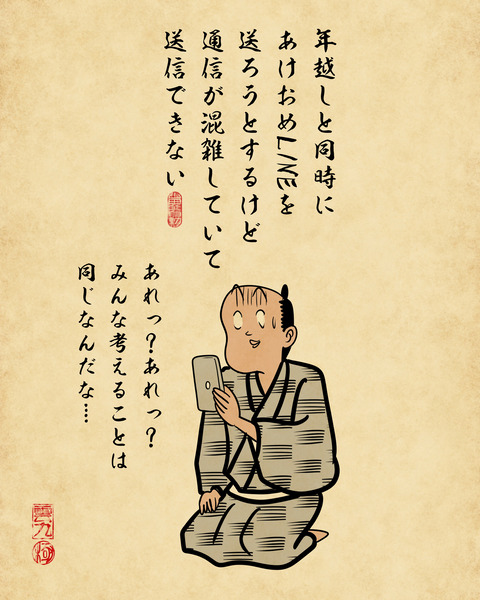 年越しと同時に
あけおめLINEを
送ろうとするけど
通信が混雑していて
送信できない
あれっ?あれっ?
みんな考えることは
同じなんだな……